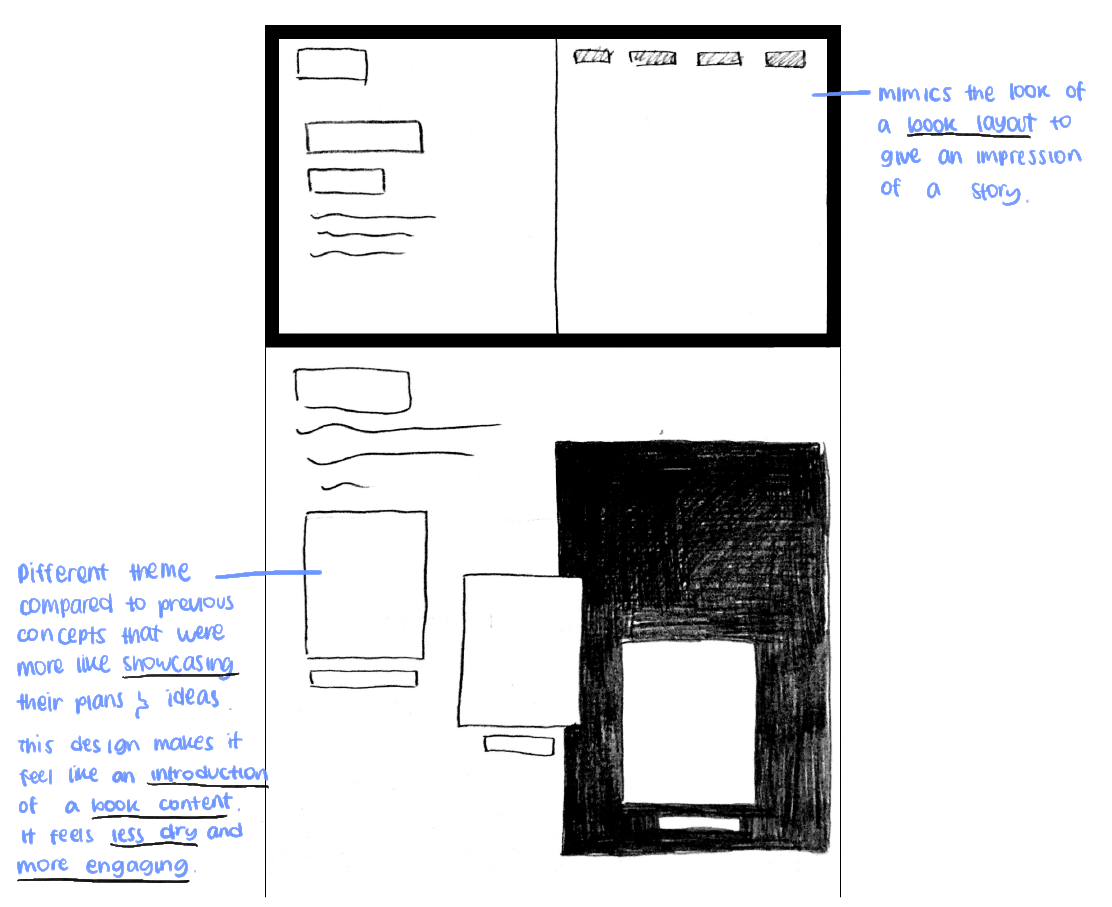 mimics the look of
a book layout to
give an impression
of a story.
Different theme
compared to previous
concepts that were
more like showcasing
their plans & ideas.
This design makes it
feel like an introduction
of a book content.
It feels less dry and
more engaging.